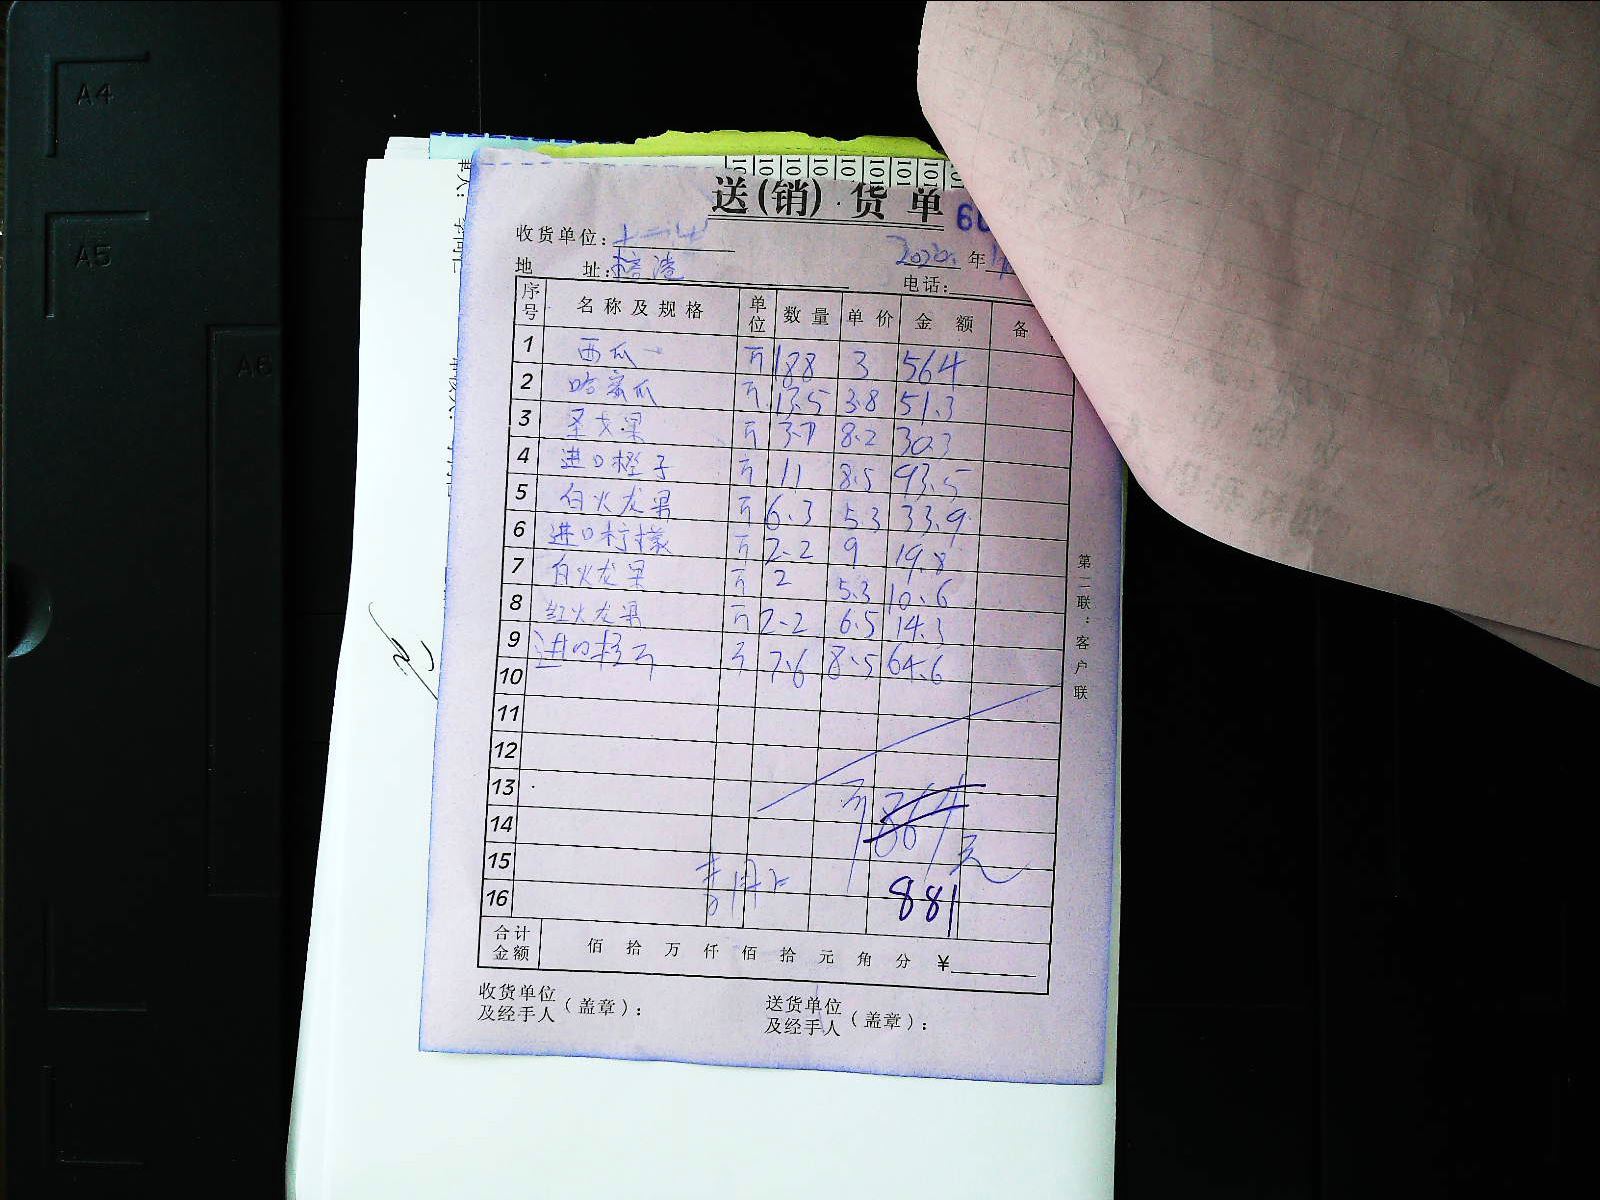 A4
A5
A6
送(销)货单
收货单位：
年
地 址：
电话：
序号 名称及规格 单位 数量 单价 金额 备
1 西瓜 斤 188 3 564
2 哈密瓜 斤 13.5 3.8 51.3
3 圣女果 斤 3.7 8.2 30.3
4 进口橙子 斤 11 8.5 93.5
5 白火龙果 斤 6.3 5.3 33.9
6 进口柠檬 斤 2.2 9 19.8
7 白火龙果 斤 2 5.3 10.6
8 红火龙果 斤 2.2 6.5 14.3
9 进口橙子 斤 7.6 8.5 64.6
10
11
12
13
14
元
15
16 881
合计金额 佰 拾 万 仟 佰 拾 元 角 分 ¥
收货单位及经手人（盖章）：
送货单位及经手人（盖章）：
第二联：客户联